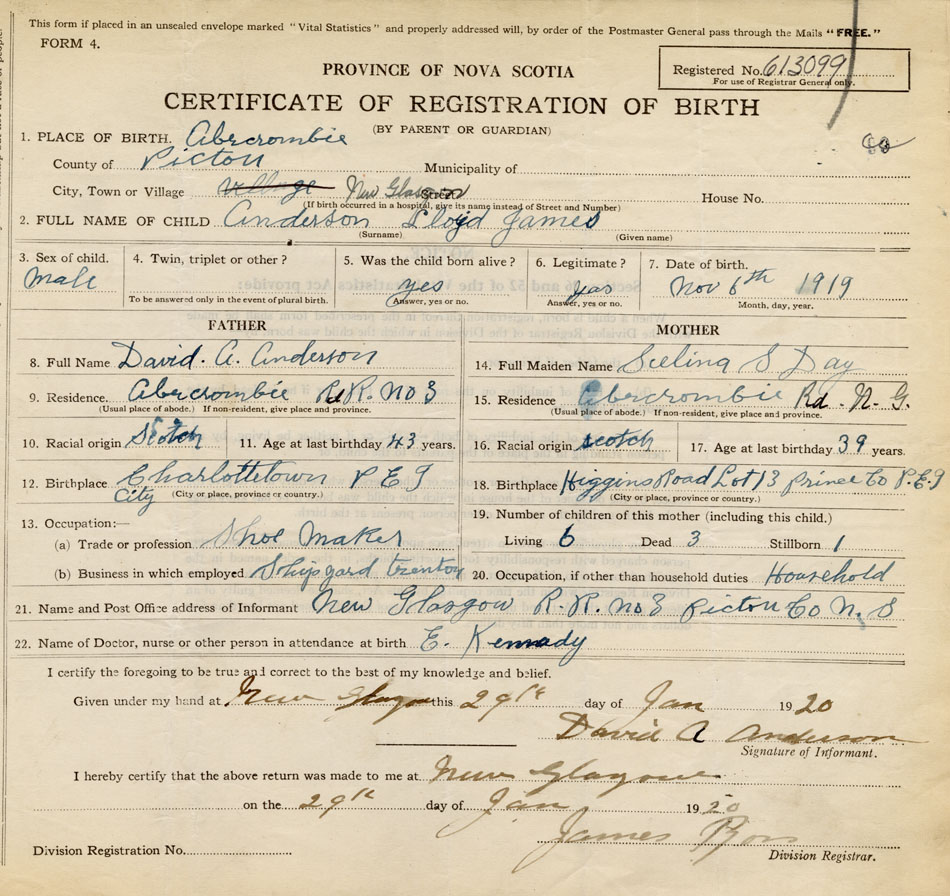 This form if placed in an unsealed envelope marked "Vital Statistics" and properly addressed will, by order of the Postmaster General pass through the Mails "FREE."
FORM 4.
Registered No. 613099
For use of Registrar General only.
PROVINCE OF NOVA SCOTIA
CERTIFICATE OF REGISTRATION OF BIRTH
(BY PARENT OR GUARDIAN)
1. PLACE OF BIRTH. Abercrombie
County of Picton Municipality of
City, Town or Village Village New Glasgow Street House No.
(If birth occurred in a hospital, give its name instead of Street and Number)
2. FULL NAME OF CHILD Anderson Lloyd James
(Surname) (Given name)
3. Sex of child. 4. Twin, triplet or other? 5. Was the child born alive? 6. Legitimate? 7. Date of birth.
Male yes yas Nov 6th 1919
To be answered only in the event of plural birth. Answer, yes or no. Answer, yes or no. Month, day, year.
FATHER MOTHER
8. Full Name David. A. Anderson 14. Full Maiden Name Seelina S Day
9. Residence. Abercrombie Rd R. No 3 15. Residence Abercrombie Rd. N. G.
(Usual place of abode.) If non-resident, give place and province. (Usual place of abode.) If non-resident, give place and province.
10. Racial origin Scotch 11. Age at last birthday 43 years. 16. Racial origin scotch 17. Age at last birthday 39 years.
12. Birthplace Charlottetown P E I 18. Birthplace Higgins Road Lot 13 prince Co P.E.I
City (City or place, province or country.) (City or place, province or country.)
13. Occupation:— 19. Number of children of this mother (including this child.)
(a) Trade or profession Shoe Maker Living 6 Dead 3 Stillborn 1
(b) Business in which employed Shipyard trenton 20. Occupation, if other than household duties Household
21. Name and Post Office address of Informant New Glasgow R. R. no 3 picton Co N. S
22. Name of Doctor, nurse or other person in attendance at birth E. Kennady
I certify the foregoing to be true and correct to the best of my knowledge and belief.
Given under my hand at New Glasgow this 29th day of Jan 1920
David A Anderson
Signature of Informant.
I hereby certify that the above return was made to me at New Glasgow
on the 29th day of Jan 1920
James
Division Registration No. Division Registrar.